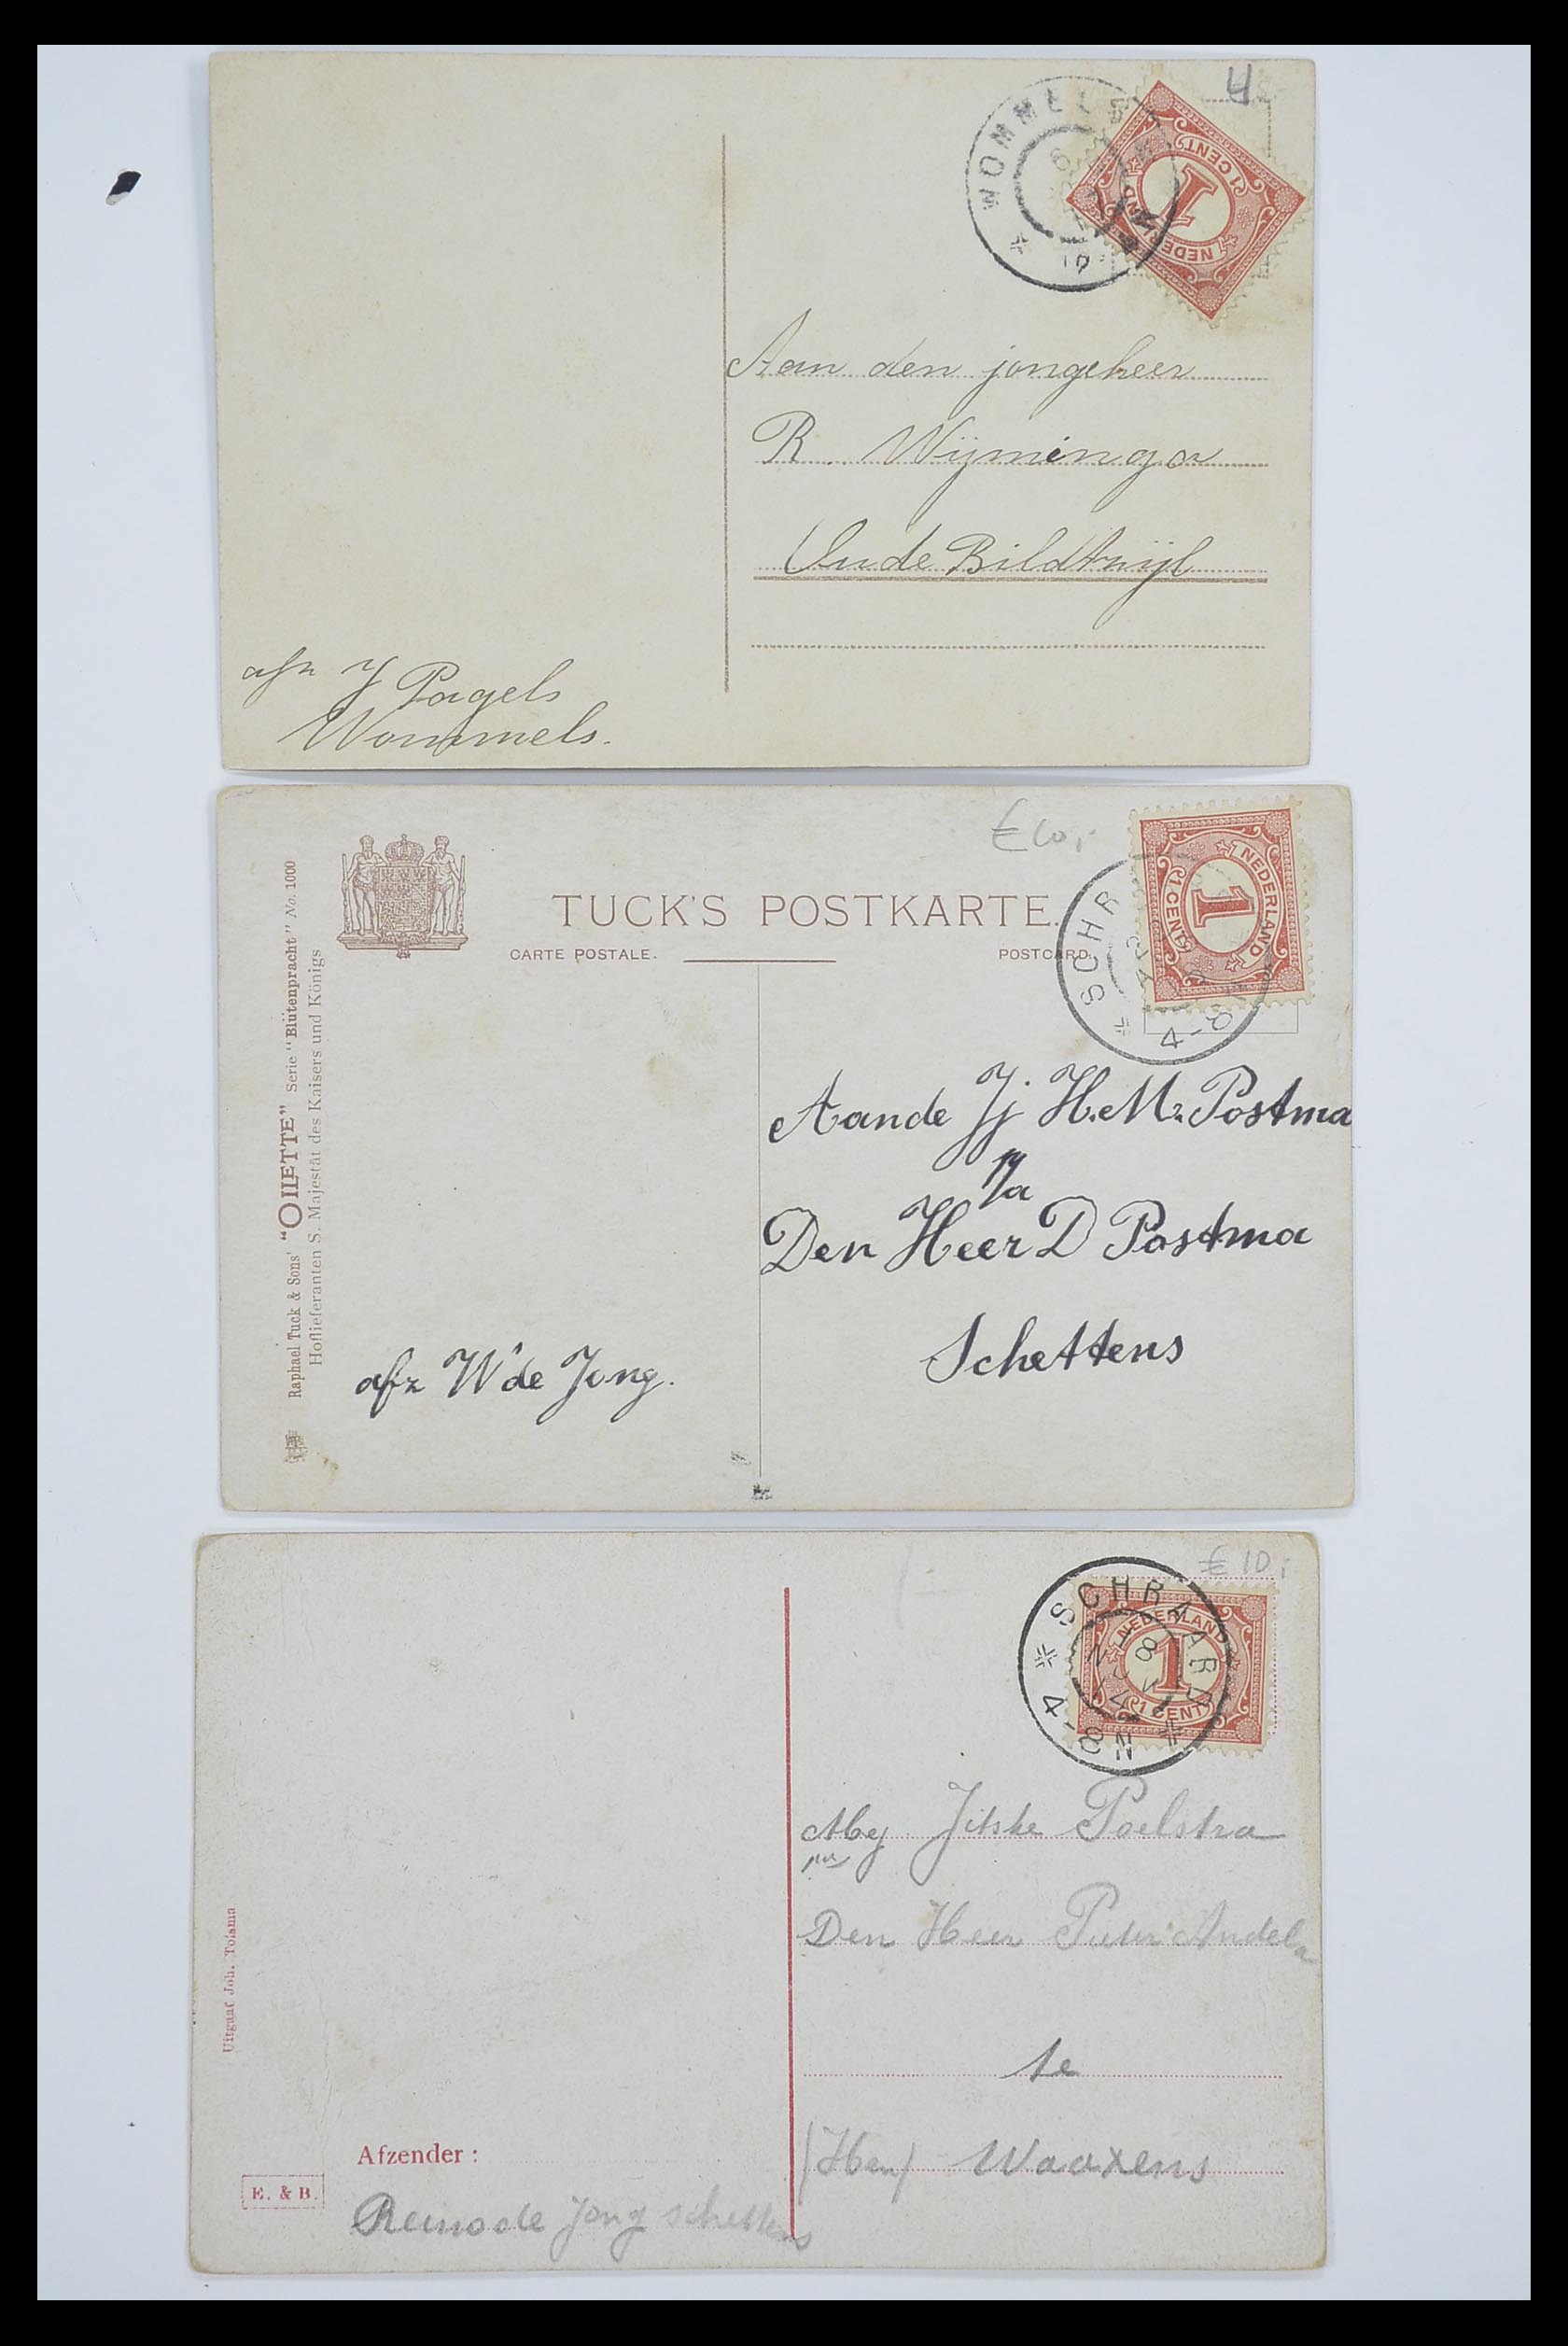 WOMMELS
NEDERLAND
1
1 CENT
Aan den jongeheer
R. Wijminga
Oude Bildtzijl
afz J Pagels
Wommels.
€ 10,-
TUCK'S POSTKARTE.
CARTE POSTALE.
POSTCARD.
SCHR
4-8
NEDERLAND
1
1 CENT
Raphael Tuck & Sons' "OILETTE" Serie "Blütenpracht" No. 1000
Hoflieferanten S. Majestät des Kaisers und Königs
Aande Jj H.M. Postma
p/a
Den Heer D Postma
Schettens
afz W de Jong.
€ 10,-
SCHRAARD
4-8 N
NEDERLAND
1
1 CENT
Mej Jitske Poelstra
Den Heer Pieter Andela
te
(Hen) Waaxens
Uitgaaf Joh. Tolsma
Afzender :
E. & B.
Reino de Jong Schettens